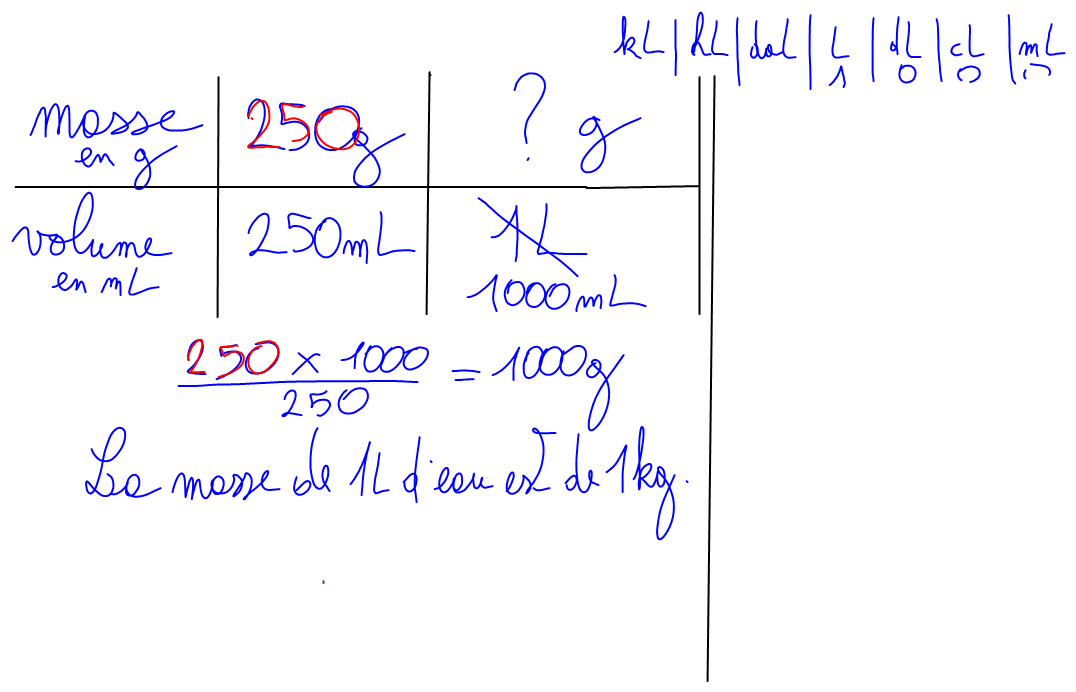 kL | hL | daL | L | dL | cL | mL
1 0 0 0
masse en g 250g ? g
volume en mL 250mL 1L
1000mL
250 × 1000 = 1000g
250
La masse de 1L d'eau est de 1kg.